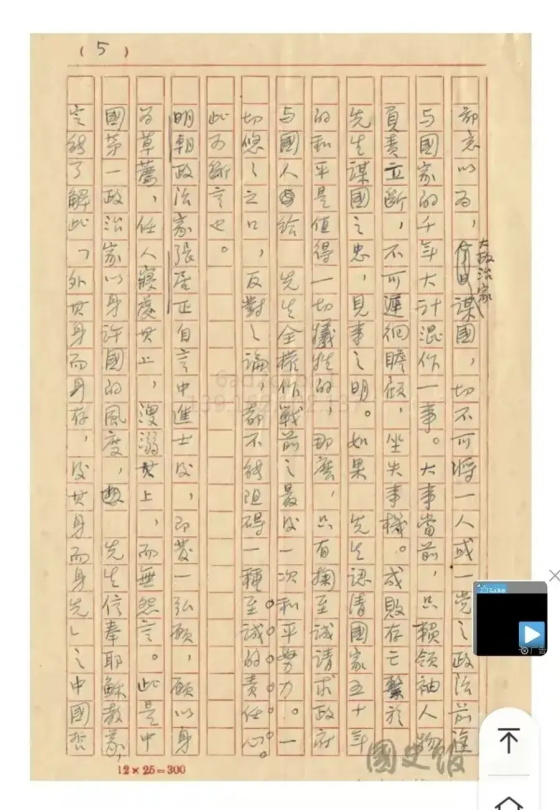 (5)
鄙意以為，大政治家謀國，切不可將一人或一党之政治前途
与國家的千年大計混作一事。大事當前，只賴領袖人物
負責立斷，不可遲徊瞻顧，坐失事機。成敗存亡繫於
先生謀國之忠，見事之明。如果 先生認清國家五十年
的和平是值得一切犧牲的，那麼，只有掬至誠請求政府
与國人給 先生全權作戰前之最後一次和平努力。一
切悠悠之口，反對之論，都不能阻碍一種至誠的責任心。
此可斷言也。
明朝政治家張居正自言中進士後，即發一弘願，願以身
為草薦，任人寢處其上，溲溺其上，而無怨言。此是中
國第一政治家以身許國的風度，想 先生信奉耶穌教義，
定能了解此「外其身而身存，後其身而身先」之中國哲
國史館
12×25=300